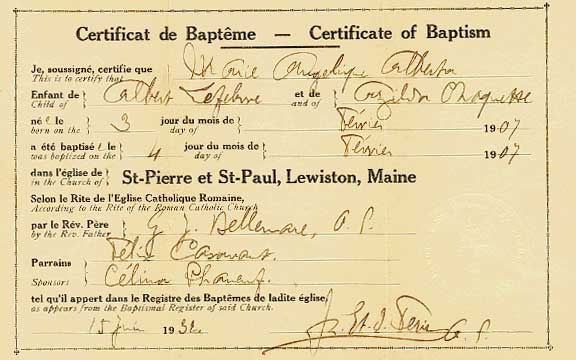 Certificat de Baptême — Certificate of Baptism
Je, soussigné, certifie que Marie Angelique Alberta
This is to certify that
Enfant de Albert Lefebvre et de Exzilda
Child of and of
né e le 3 jour du mois de Février 1907
born on the day of
a été baptisé e le 4 jour du mois de Février 1907
was baptized on the day of
dans l'église de St-Pierre et St-Paul, Lewiston, Maine
in the Church of
Selon le Rite de l'Eglise Catholique Romaine,
According to the Rite of the Roman Catholic Church
par le Rév. Père J. Bellemare, O. P.
by the Rev. Father
Félix Casavant
Parrains
Sponsors Célina Phaneuf
tel qu'il appert dans le Registre des Baptêmes de ladite église,
as appears from the Baptismal Register of said Church.
15 juin 193 O. P.